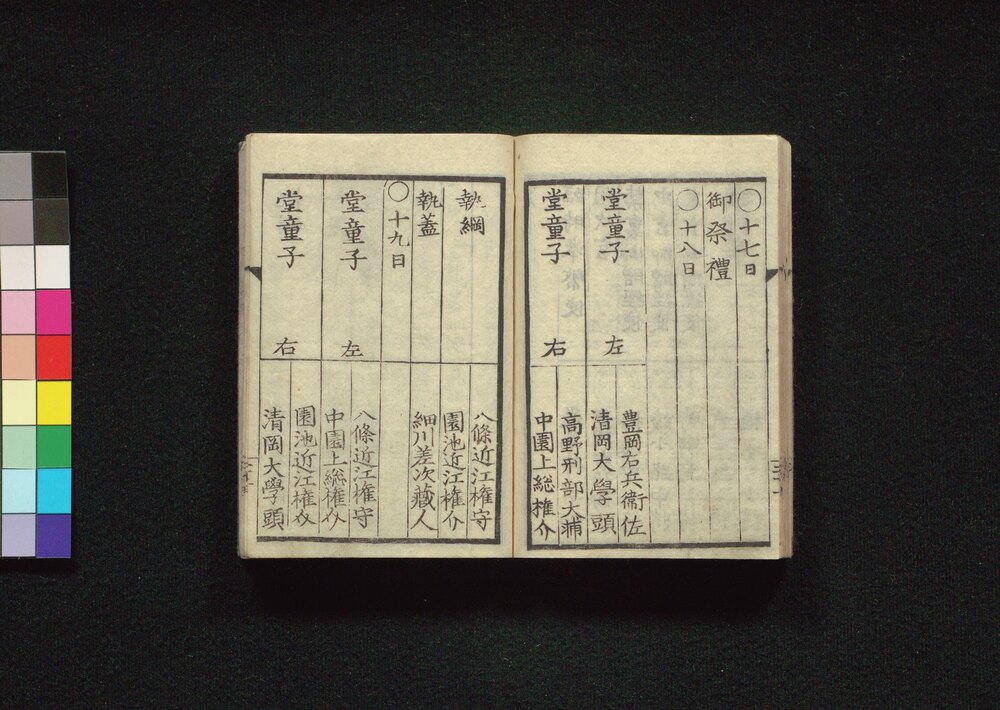 〇十七日
御祭禮
〇十八日
堂童子 左
豊岡右兵衛佐
清岡大學頭
堂童子 右
高野刑部大輔
中園上総権介
執綱
八條近江権守
園池近江権介
執蓋
細川差次蔵人
〇十九日
堂童子 左
八條近江権守
中園上総権介
堂童子 右
園池近江権介
清岡大學頭